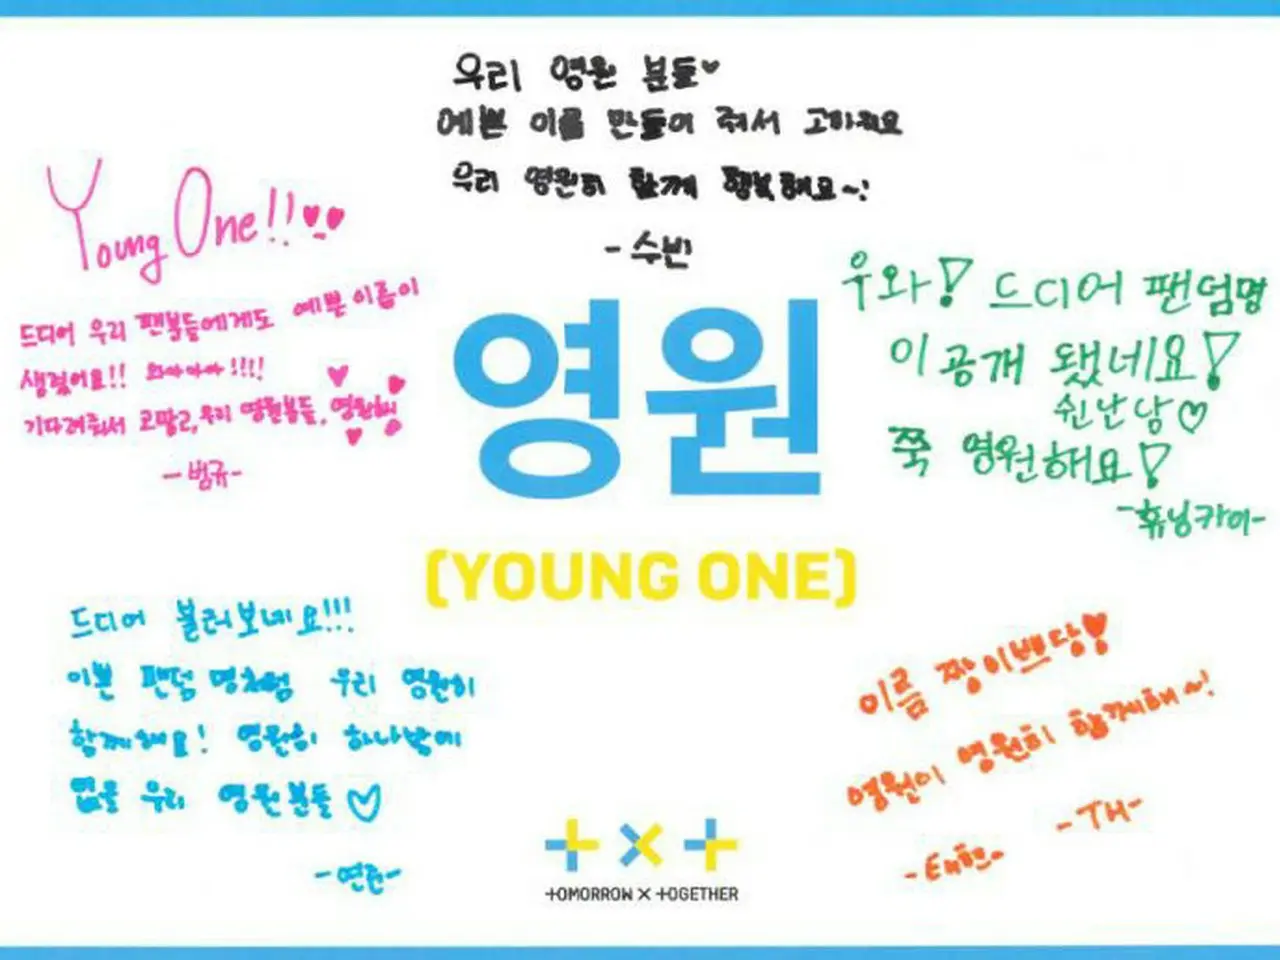 우리 영원 분들♥
예쁜 이름 만들어 줘서 고마워요
우리 영원히 함께 행복해요~!
-수빈
Young One!!
드디어 우리 팬분들에게도 예쁜 이름이
생겼어요!! 와아아아!!!!
기다려줘서 고맙고, 우리 영원분들, 영원해
-범규-
우와! 드디어 팬덤명
이 공개 됐네요!
쉰난낭♡
쭉 영원해요!
-휴닝카이-
영원
(YOUNG ONE)
드디어 불러보네요!!!
이쁜 팬덤명처럼 우리 영원히
함께해요! 영원히 하나밖에
없을 우리 영원분들♡
-연준-
이름 짱이쁘당!
영원이 영원히 함께해~!
-TH-
-태현-
+×+
TOMORROW × TOGETHER